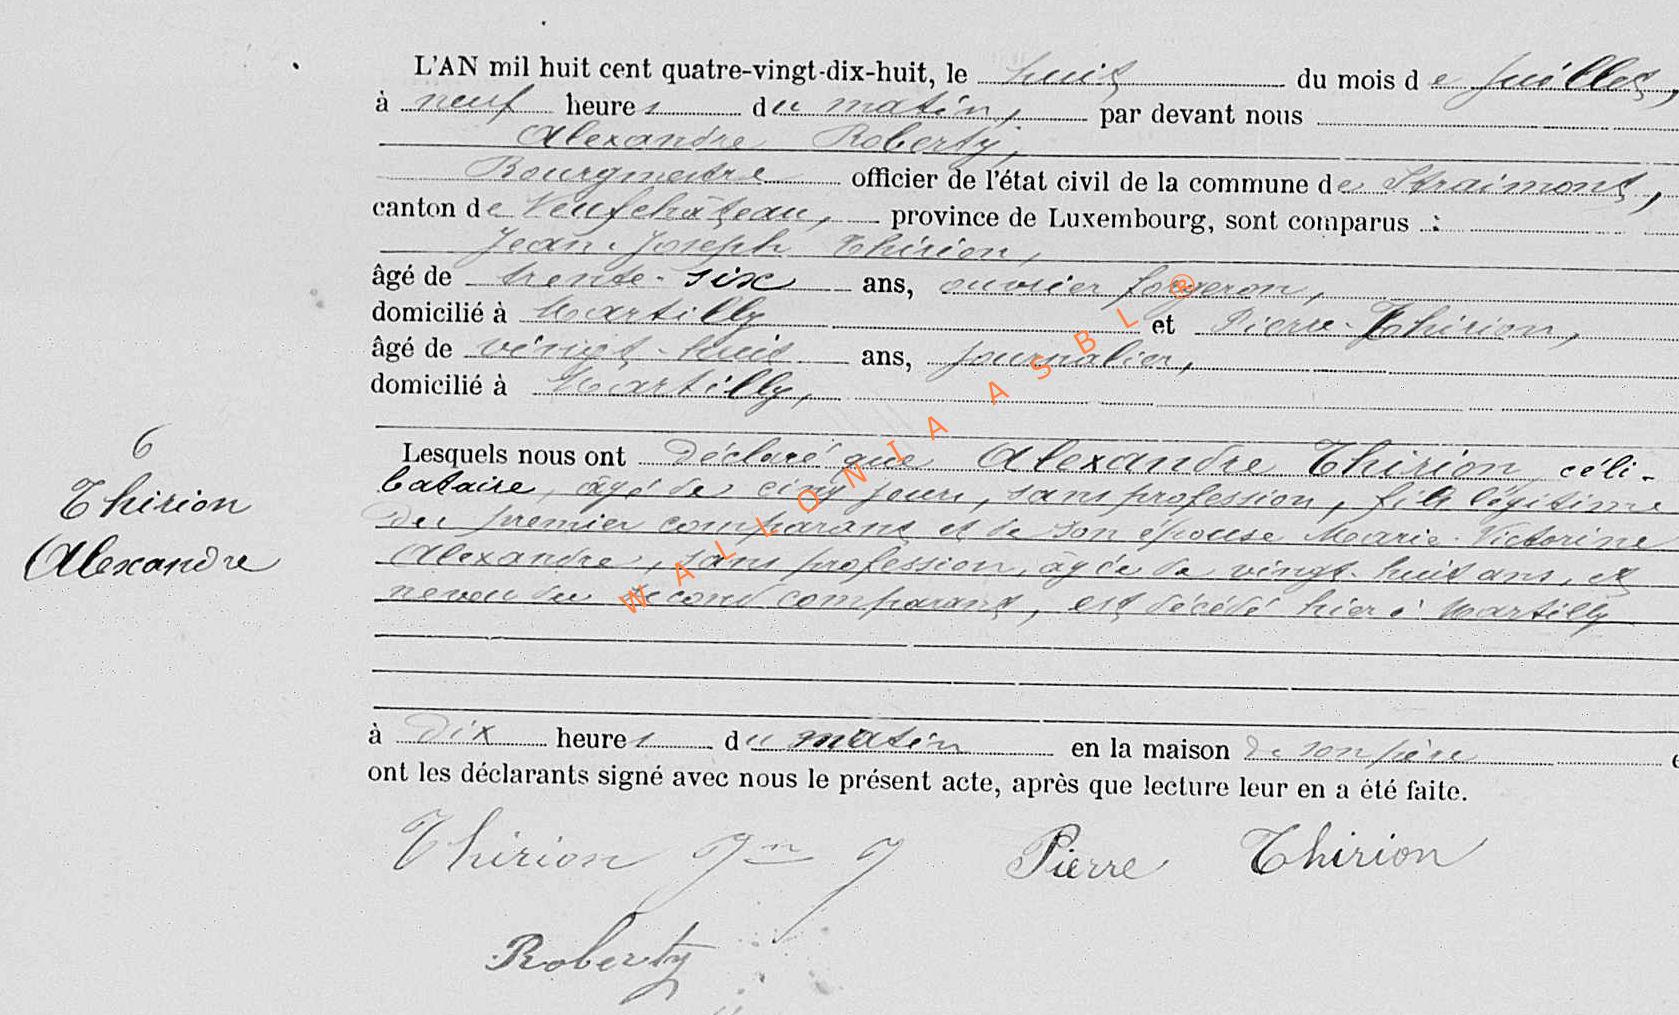 L'AN mil huit cent quatre-vingt-dix-huit, le huit du mois de Juillet,
à neuf heures du matin, par devant nous
Alexandre Roberty,
Bourgmestre officier de l'état civil de la commune de Straimont,
canton de Neufchâteau, province de Luxembourg, sont comparus :
Jean-Joseph Thirion,
âgé de trente-six ans, ouvrier forgeron,
domicilié à Martilly et Pierre Thirion,
âgé de vingt-huit ans, journalier,
domicilié à Martilly,
6
Thirion
Alexandre
Lesquels nous ont déclaré que Alexandre Thirion céli-
bataire, âgé de cinq jours, sans profession, fils légitime
du premier comparant et de son épouse Marie-Victorine
Alexandre, sans profession, âgée de vingt-huit ans, et
neveu du second comparant, est décédé hier à Martilly
à dix heures du matin en la maison de son père e
ont les déclarants signé avec nous le présent acte, après que lecture leur en a été faite.
Thirion Jn J Pierre Thirion
Roberty
WALLONIA ASBL ®